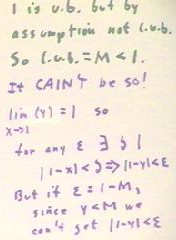 1 is u.b. but by
assumption not l.u.b.
So l.u.b. = M < 1.
It CAIN'T be so!
lim (y) = 1 so
x→1
for any ε ∃ δ |
|1-x| < δ ⇒ |1-y| < ε
But if ε = 1-M,
since y < M we
can't get |1-y| < ε